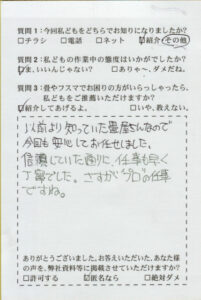 質問1:今回私どもをどちらでお知りになりましたか?
□チラシ □電話 □ネット ☑紹介・その他
質問2:私どもの作業中の態度はいかがでしたか?
☑ま、いいんじゃない? □ありゃ~、ダメだね。
質問3:畳やフスマでお困りの方がいらっしゃったら、
私どもをご推薦いただけますか?
☑紹介してあげるよ。 □いや、教えない。
以前より知っていた畳屋さんなので
今回も安心してお任せしました。
信頼していた通りに、仕事も早く
丁寧でした。さすが“プロ”の仕事
ですね。
ありがとうございました。お答えいただいた、あなた様
の声を、弊社資料等に掲載させていただけますか?
□許可する ☑匿名なら □絶対ダメ